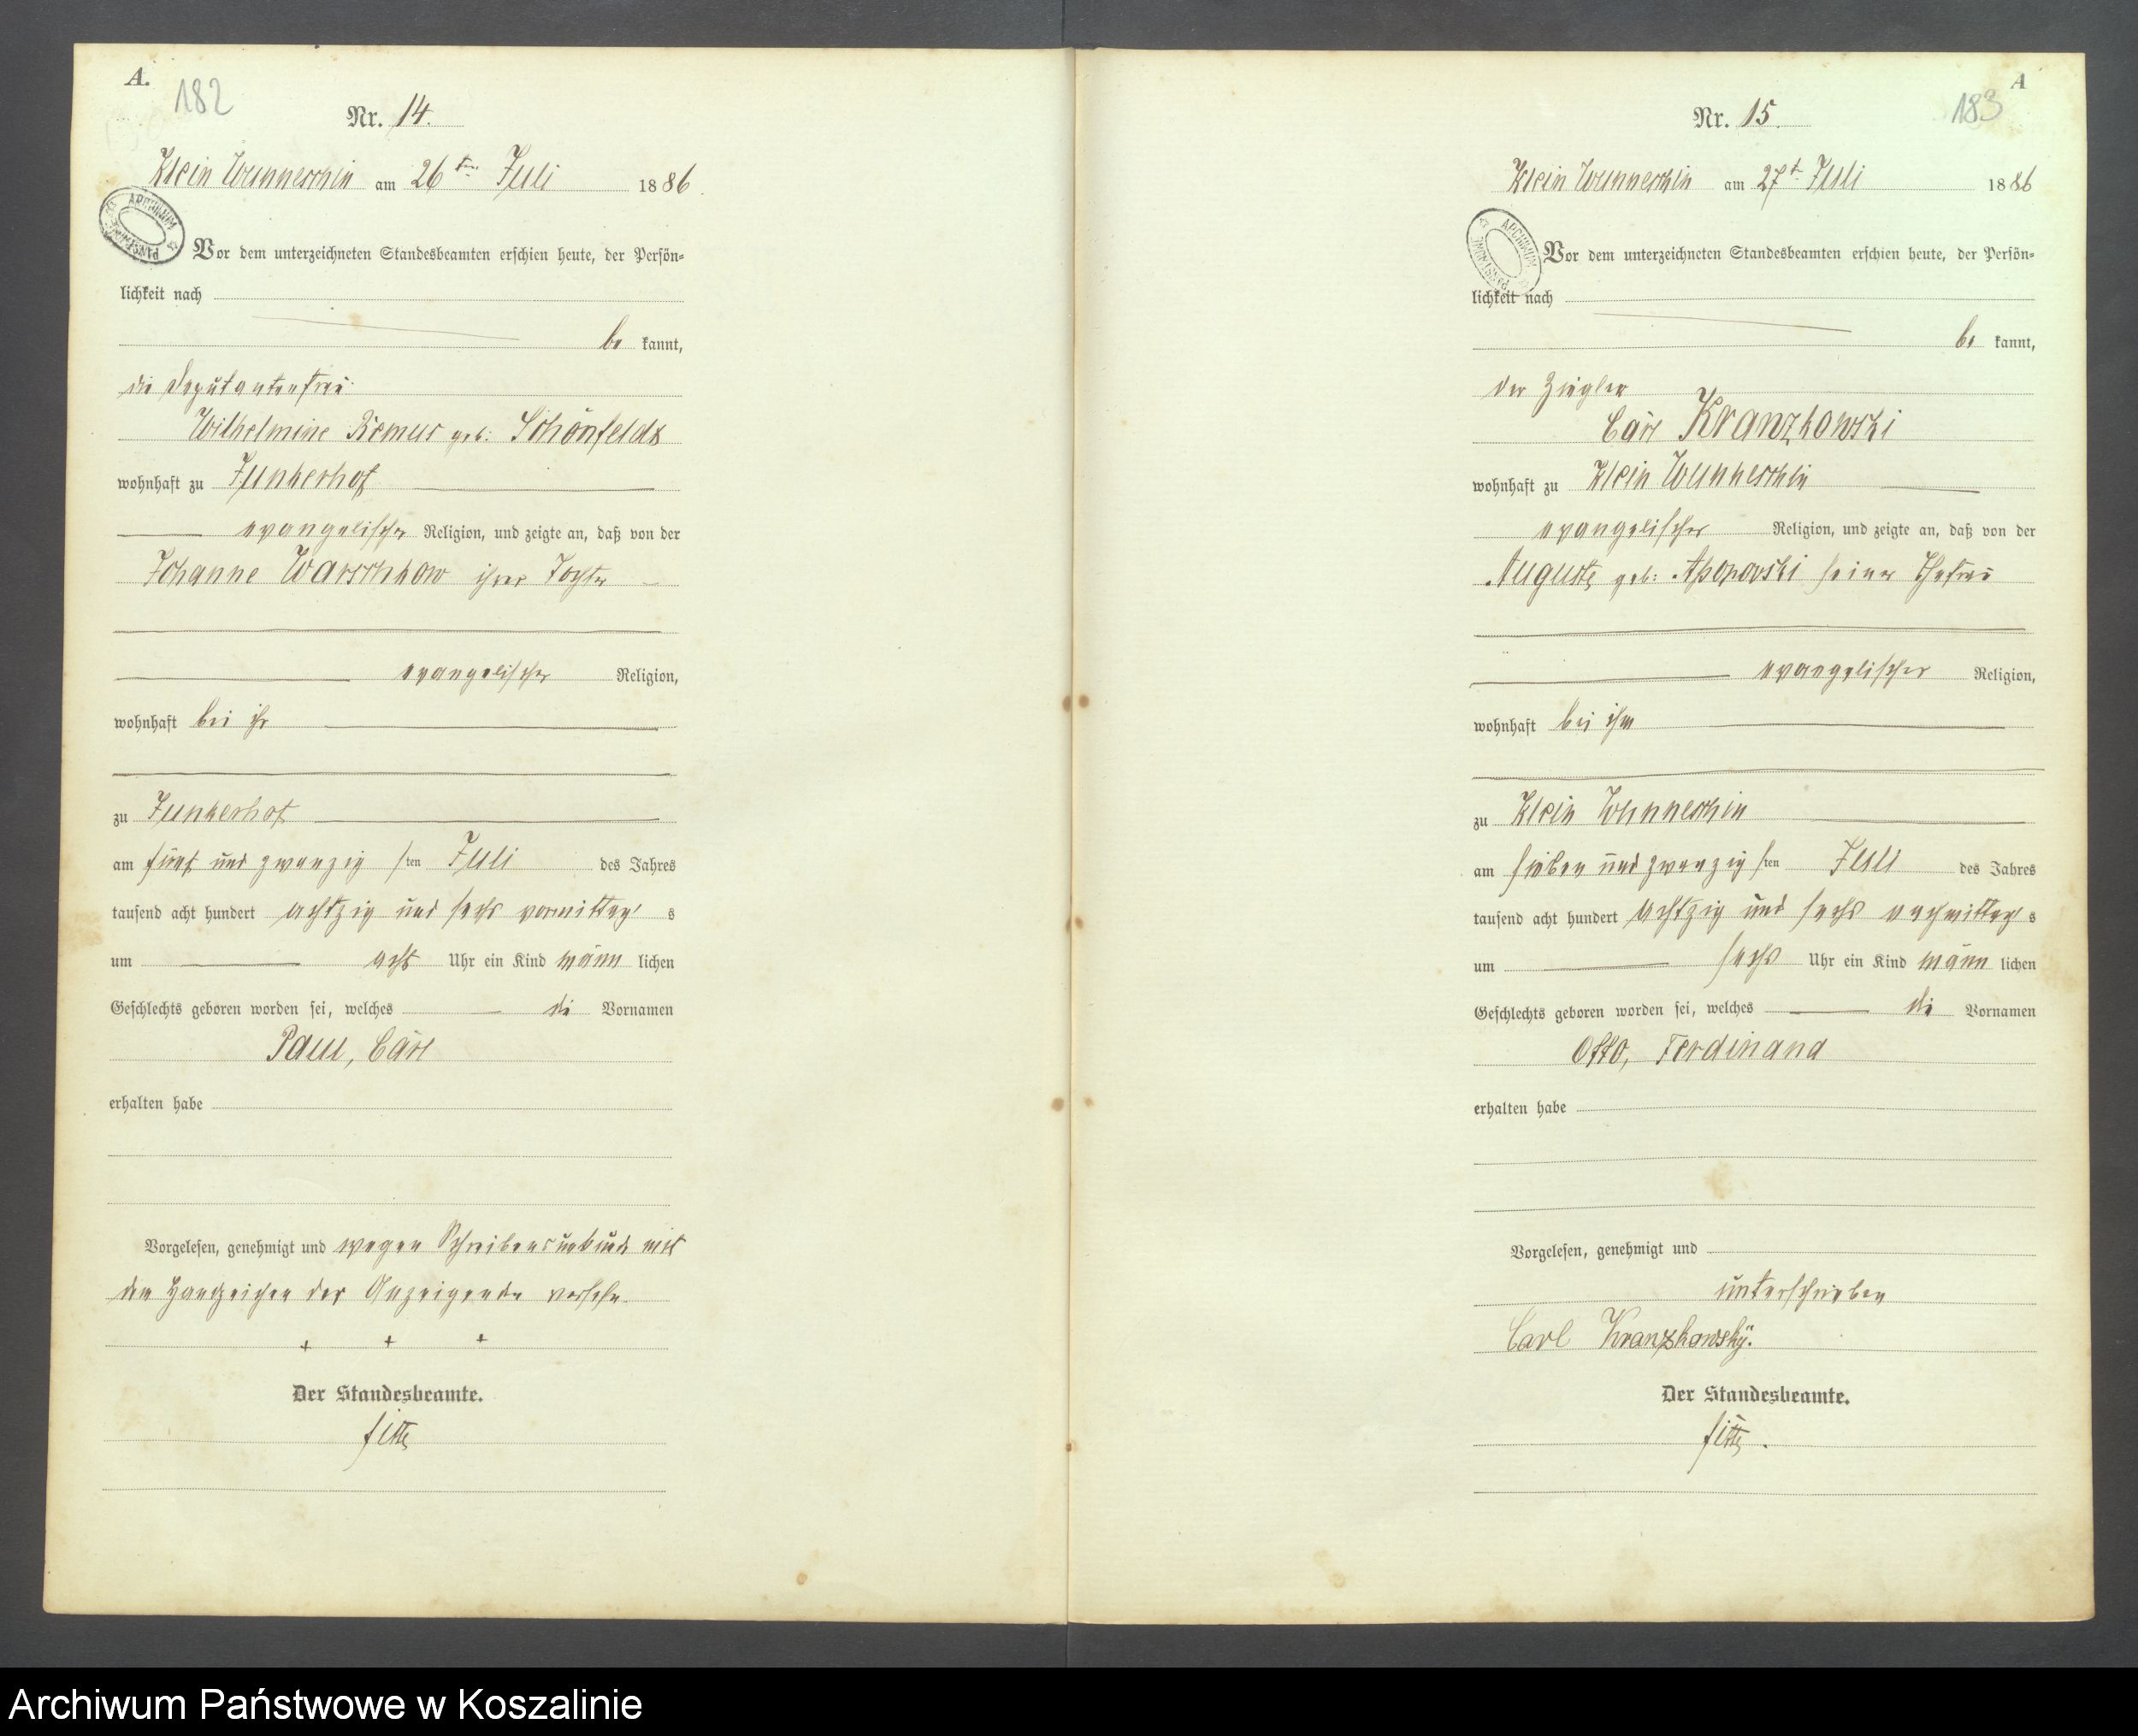 A.
182
Nr. 14.
Klein Wunneschin am 26ten Juli 1886.
ARCHIWUM PAŃSTWOWE
Vor dem unterzeichneten Standesbeamten erschien heute, der Persön-
lichkeit nach
be kannt,
die Deputantenfrau
Wilhelmine Remus geb: Schönfeldt
wohnhaft zu Junkerhof
evangelischer Religion, und zeigte an, daß von der
Johanne Warschkow ihrer Tochter
evangelischer Religion,
wohnhaft bei ihr
zu Junkerhof
am fünf und zwanzig sten Juli des Jahres
tausend acht hundert achtzig und sechs vormittag s
um acht Uhr ein Kind männ lichen
Geschlechts geboren worden sei, welches die Vornamen
Paul, Carl
erhalten habe
Vorgelesen, genehmigt und wegen Schreibensunkunde mit
dem Handzeichen der Anzeigende versehn.
+ + +
Der Standesbeamte.
A
183
Nr. 15.
Klein Wunneschin am 27t. Juli 1886
ARCHIWUM PAŃSTWOWE
Vor dem unterzeichneten Standesbeamten erschien heute, der Persön-
lichkeit nach
be kannt,
der Ziegler
Carl Kranzkowski
wohnhaft zu Klein Wunneschin
evangelischer Religion, und zeigte an, daß von der
Auguste geb: seiner Ehefrau
evangelischer Religion,
wohnhaft bei ihm
zu Klein Wunneschin
am sieben und zwanzig sten Juli des Jahres
tausend acht hundert achtzig und sechs nachmittag s
um sechs Uhr ein Kind männ lichen
Geschlechts geboren worden sei, welches die Vornamen
Otto, Ferdinand
erhalten habe
Vorgelesen, genehmigt und
unterschrieben
Carl Kranzkowsky.
Der Standesbeamte.
Archiwum Państwowe w Koszalinie